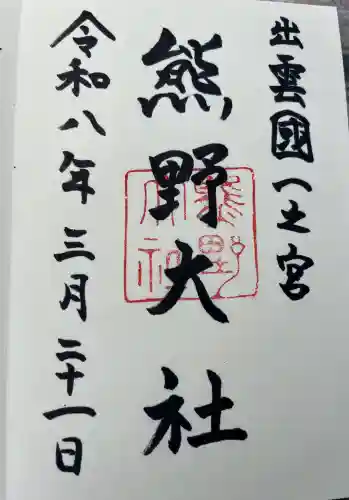 出雲國一之宮
熊野大社
熊野
大社
令和八年三月二十一日